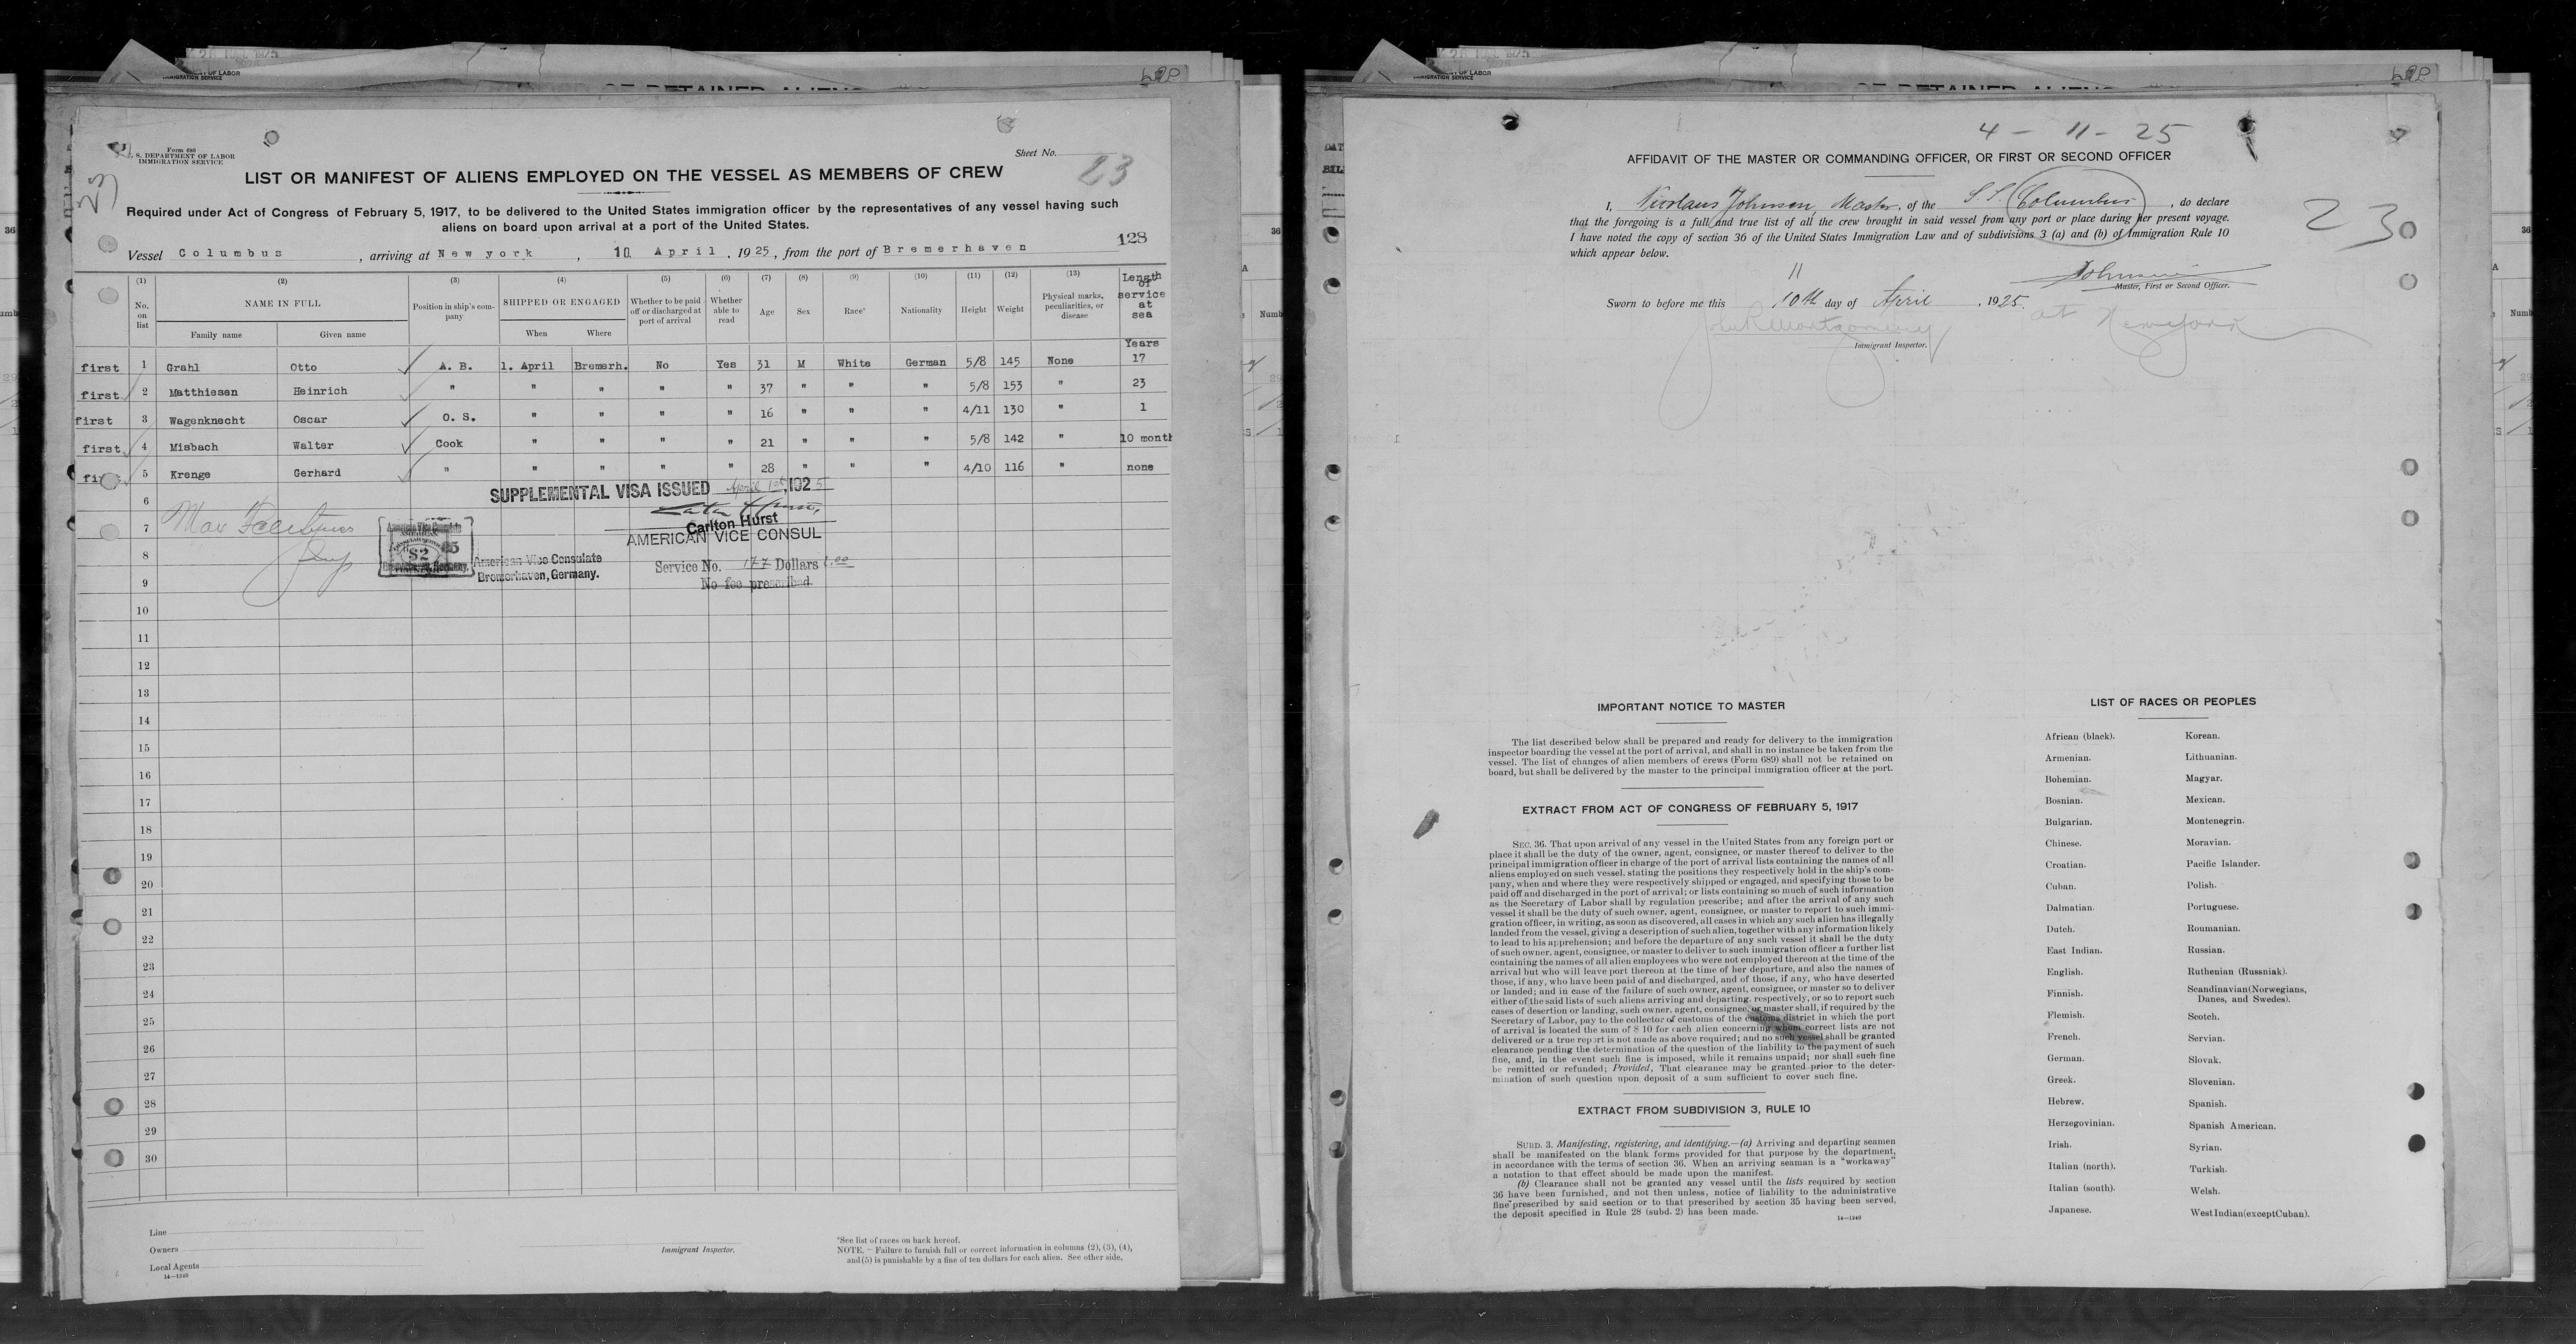 26 MAR 1925
T OF LABOR
IMMIGRATION SERVICE
Form 680
U. S. DEPARTMENT OF LABOR
IMMIGRATION SERVICE
Sheet No.
23
23
LIST OR MANIFEST OF ALIENS EMPLOYED ON THE VESSEL AS MEMBERS OF CREW
Required under Act of Congress of February 5, 1917, to be delivered to the United States immigration officer by the representatives of any vessel having such
aliens on board upon arrival at a port of the United States.
128
Vessel Columbus, arriving at New york, 10. April, 1925, from the port of Bremerhaven
(1) (2) (3) (4) (5) (6) (7) (8) (9) (10) (11) (12) (13)
No. on list NAME IN FULL Family name Given name Position in ship's com- pany SHIPPED OR ENGAGED When Where Whether to be paid off or discharged at port of arrival Whether able to read Age Sex Race* Nationality Height Weight Physical marks, peculiarities, or disease Length of service at sea
Years
first 1 Grahl Otto A. B. 1. April Bremerh. No Yes 31 M White German 5/8 145 None 17
first 2 Matthiesen Heinrich " " " " " 37 " " " 5/8 153 " 23
first 3 Wagenknecht Oscar O. S. " " " " 16 " " " 4/11 130 " 1
first 4 Misbach Walter Cook " " " " 21 " " " 5/8 142 " 10 month
first 5 Krenge Gerhard " " " " " 28 " " " 4/10 116 " none
6
7
8
9
10
11
12
13
14
15
16
17
18
19
20
21
22
23
24
25
26
27
28
29
30
SUPPLEMENTAL VISA ISSUED April 1st, 1925
Carlton Hurst
AMERICAN VICE CONSUL
American Vice Consulate
Bremerhaven, Germany.
Service No. 177 Dollars 1.00
No fee prescribed.
Line
Owners
Local Agents
14—1240
Immigrant Inspector.
*See list of races on back hereof.
NOTE.—Failure to furnish full or correct information in columns (2), (3), (4),
and (5) is punishable by a fine of ten dollars for each alien. See other side.
4 - 11 - 25
AFFIDAVIT OF THE MASTER OR COMMANDING OFFICER, OR FIRST OR SECOND OFFICER
I, Nicolaus Johnson, Master, of the S. S. Columbus, do declare
that the foregoing is a full and true list of all the crew brought in said vessel from any port or place during her present voyage.
I have noted the copy of section 36 of the United States Immigration Law and of subdivisions 3 (a) and (b) of Immigration Rule 10
which appear below.
23
Johnson
Master, First or Second Officer.
11
Sworn to before me this 10th day of April, 1925.
at New york
John R Montgomery
Immigrant Inspector.
IMPORTANT NOTICE TO MASTER
The list described below shall be prepared and ready for delivery to the immigration
inspector boarding the vessel at the port of arrival, and shall in no instance be taken from the
vessel. The list of changes of alien members of crews (Form 689) shall not be retained on
board, but shall be delivered by the master to the principal immigration officer at the port.
EXTRACT FROM ACT OF CONGRESS OF FEBRUARY 5, 1917
SEC. 36. That upon arrival of any vessel in the United States from any foreign port or
place it shall be the duty of the owner, agent, consignee, or master thereof to deliver to the
principal immigration officer in charge of the port of arrival lists containing the names of all
aliens employed on such vessel, stating the positions they respectively hold in the ship's com-
pany, when and where they were respectively shipped or engaged, and specifying those to be
paid off and discharged in the port of arrival; or lists containing so much of such information
as the Secretary of Labor shall by regulation prescribe; and after the arrival of any such
vessel it shall be the duty of such owner, agent, consignee, or master to report to such immi-
gration officer, in writing, as soon as discovered, all cases in which any such alien has illegally
landed from the vessel, giving a description of such alien, together with any information likely
to lead to his apprehension; and before the departure of any such vessel it shall be the duty
of such owner, agent, consignee, or master to deliver to such immigration officer a further list
containing the names of all alien employees who were not employed thereon at the time of the
arrival but who will leave port thereon at the time of her departure, and also the names of
those, if any, who have been paid of and discharged, and of those, if any, who have deserted
or landed; and in case of the failure of such owner, agent, consignee, or master so to deliver
either of the said lists of such aliens arriving and departing, respectively, or so to report such
cases of desertion or landing, such owner, agent, consignee, or master shall, if required by the
Secretary of Labor, pay to the collector of customs of the customs district in which the port
of arrival is located the sum of $10 for each alien concerning whom correct lists are not
delivered or a true report is not made as above required; and no such vessel shall be granted
clearance pending the determination of the question of the liability to the payment of such
fine, and, in the event such fine is imposed, while it remains unpaid; nor shall such fine
be remitted or refunded; Provided, That clearance may be granted prior to the deter-
mination of such question upon deposit of a sum sufficient to cover such fine.
EXTRACT FROM SUBDIVISION 3, RULE 10
SUBD. 3. Manifesting, registering, and identifying.—(a) Arriving and departing seamen
shall be manifested on the blank forms provided for that purpose by the department,
in accordance with the terms of section 36. When an arriving seaman is a "workaway"
a notation to that effect should be made upon the manifest.
(b) Clearance shall not be granted any vessel until the lists required by section
36 have been furnished, and not then unless, notice of liability to the administrative
fine prescribed by said section or to that prescribed by section 35 having been served,
the deposit specified in Rule 28 (subd. 2) has been made.
14—1240
LIST OF RACES OR PEOPLES
African (black). Korean.
Armenian. Lithuanian.
Bohemian. Magyar.
Bosnian. Mexican.
Bulgarian. Montenegrin.
Chinese. Moravian.
Croatian. Pacific Islander.
Cuban. Polish.
Dalmatian. Portuguese.
Dutch. Roumanian.
East Indian. Russian.
English. Ruthenian (Russniak).
Finnish. Scandinavian (Norwegians, Danes, and Swedes).
Flemish. Scotch.
French. Servian.
German. Slovak.
Greek. Slovenian.
Hebrew. Spanish.
Herzegovinian. Spanish American.
Irish. Syrian.
Italian (north). Turkish.
Italian (south). Welsh.
Japanese. West Indian (except Cuban).